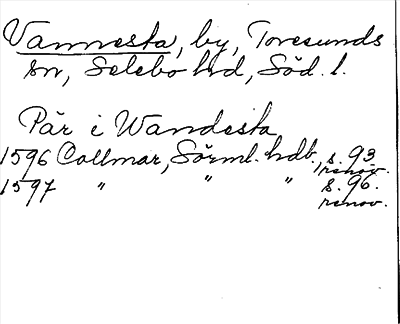 Vannesta, by, Toresunds
sn, Selebo hd, Söd. l.
Pär i Wandesta
1596 Collmar, Sörml. hdb, s. 93.
renov.
1597 " " " s. 96.
renov.